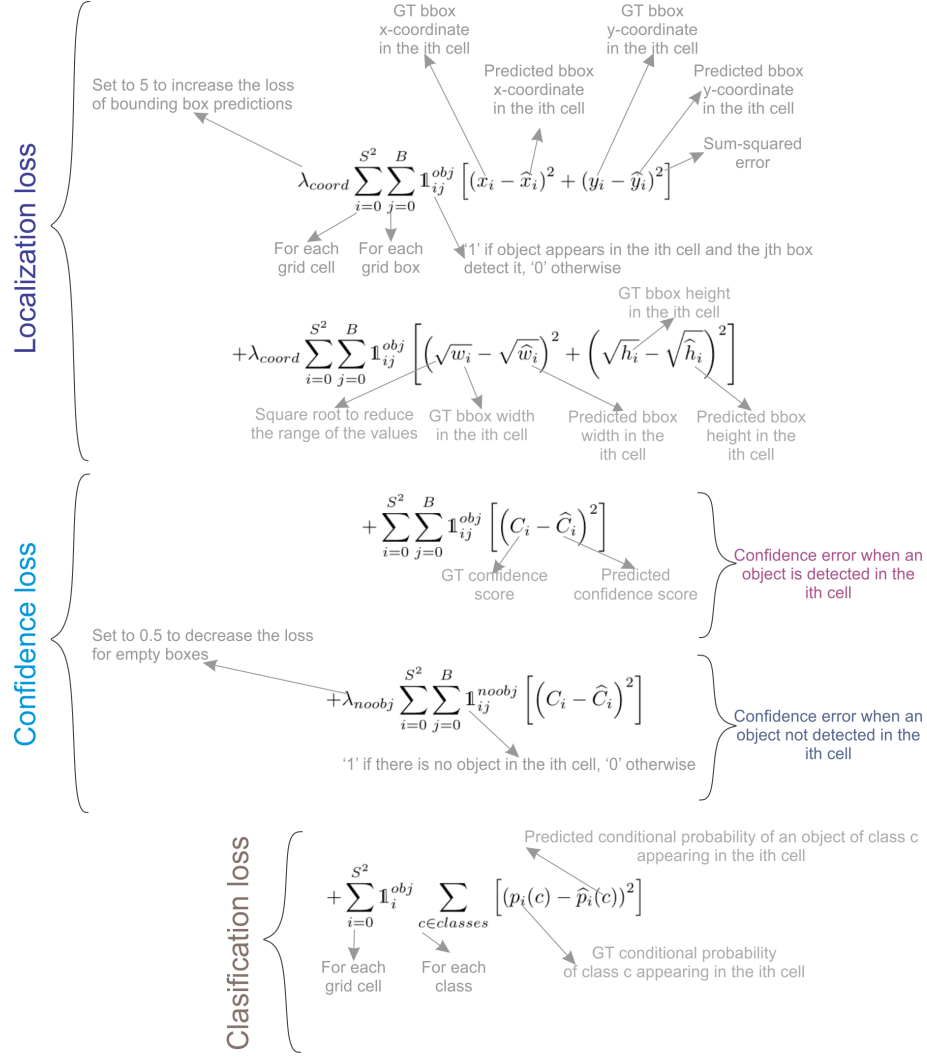 GT bbox
x-coordinate
in the ith cell
GT bbox
y-coordinate
in the ith cell
Predicted bbox
x-coordinate
in the ith cell
Predicted bbox
y-coordinate
in the ith cell
Set to 5 to increase the loss
of bounding box predictions
Sum-squared
error
Localization loss
λ_{coord} \sum_{i=0}^{S^2} \sum_{j=0}^{B} 𝟙_{ij}^{obj} [(x_i − \hat{x}_i)^2 + (y_i − \hat{y}_i)^2]
For each
grid cell
For each
grid box
'1' if object appears in the ith cell and the jth box
detect it, '0' otherwise
GT bbox height
in the ith cell
+λ_{coord} \sum_{i=0}^{S^2} \sum_{j=0}^{B} 𝟙_{ij}^{obj} [(\sqrt{w_i} − \sqrt{\hat{w}_i})^2 + (\sqrt{h_i} − \sqrt{\hat{h}_i})^2]
Square root to reduce
the range of the values
GT bbox width
in the ith cell
Predicted bbox
width in the
ith cell
Predicted bbox
height in the
ith cell
Confidence loss
+ \sum_{i=0}^{S^2} \sum_{j=0}^{B} 𝟙_{ij}^{obj} [(C_i − \hat{C}_i)^2]
GT confidence
score
Predicted
confidence score
Confidence error when an
object is detected in the
ith cell
Set to 0.5 to decrease the loss
for empty boxes
+λ_{noobj} \sum_{i=0}^{S^2} \sum_{j=0}^{B} 𝟙_{ij}^{noobj} [(C_i − \hat{C}_i)^2]
'1' if there is no object in the ith cell, '0' otherwise
Confidence error when an
object not detected in the
ith cell
Clasification loss
Predicted conditional probability of an object of class c
appearing in the ith cell
+ \sum_{i=0}^{S^2} 𝟙_{i}^{obj} \sum_{c∈classes} [(p_i(c) − \hat{p}_i(c))^2]
For each
grid cell
For each
class
GT conditional probability
of class c appearing in the ith cell